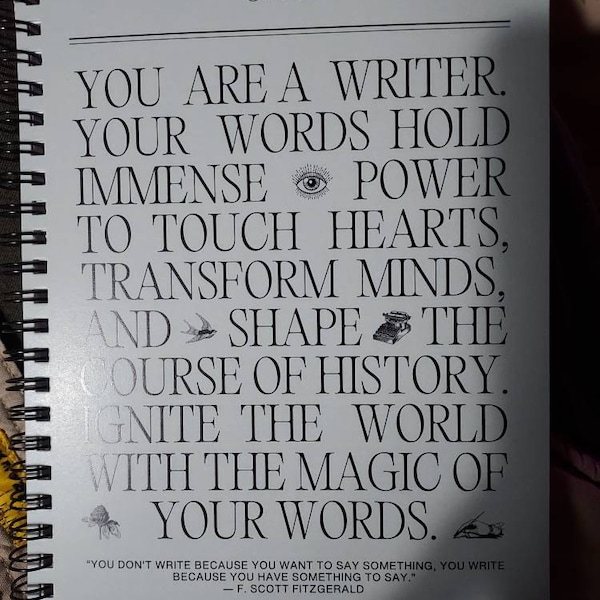 YOU ARE A WRITER.
YOUR WORDS HOLD
IMMENSE POWER
TO TOUCH HEARTS,
TRANSFORM MINDS,
AND SHAPE THE
COURSE OF HISTORY.
IGNITE THE WORLD
WITH THE MAGIC OF
YOUR WORDS.
"YOU DON'T WRITE BECAUSE YOU WANT TO SAY SOMETHING, YOU WRITE
BECAUSE YOU HAVE SOMETHING TO SAY."
— F. SCOTT FITZGERALD